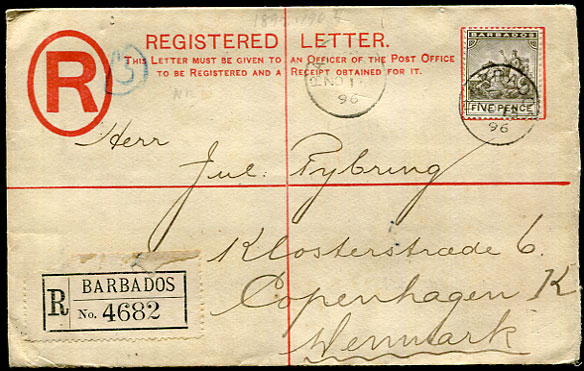 REGISTERED LETTER.
THIS LETTER MUST BE GIVEN TO AN OFFICER OF THE POST OFFICE
TO BE REGISTERED AND A RECEIPT OBTAINED FOR IT.
R
BARBADOS
FIVE PENCE
NO 1
96
96
Herr
Jul. Fybring
Klosterstræde 6.
Copenhagen K
Denmark
R
BARBADOS
No. 4682